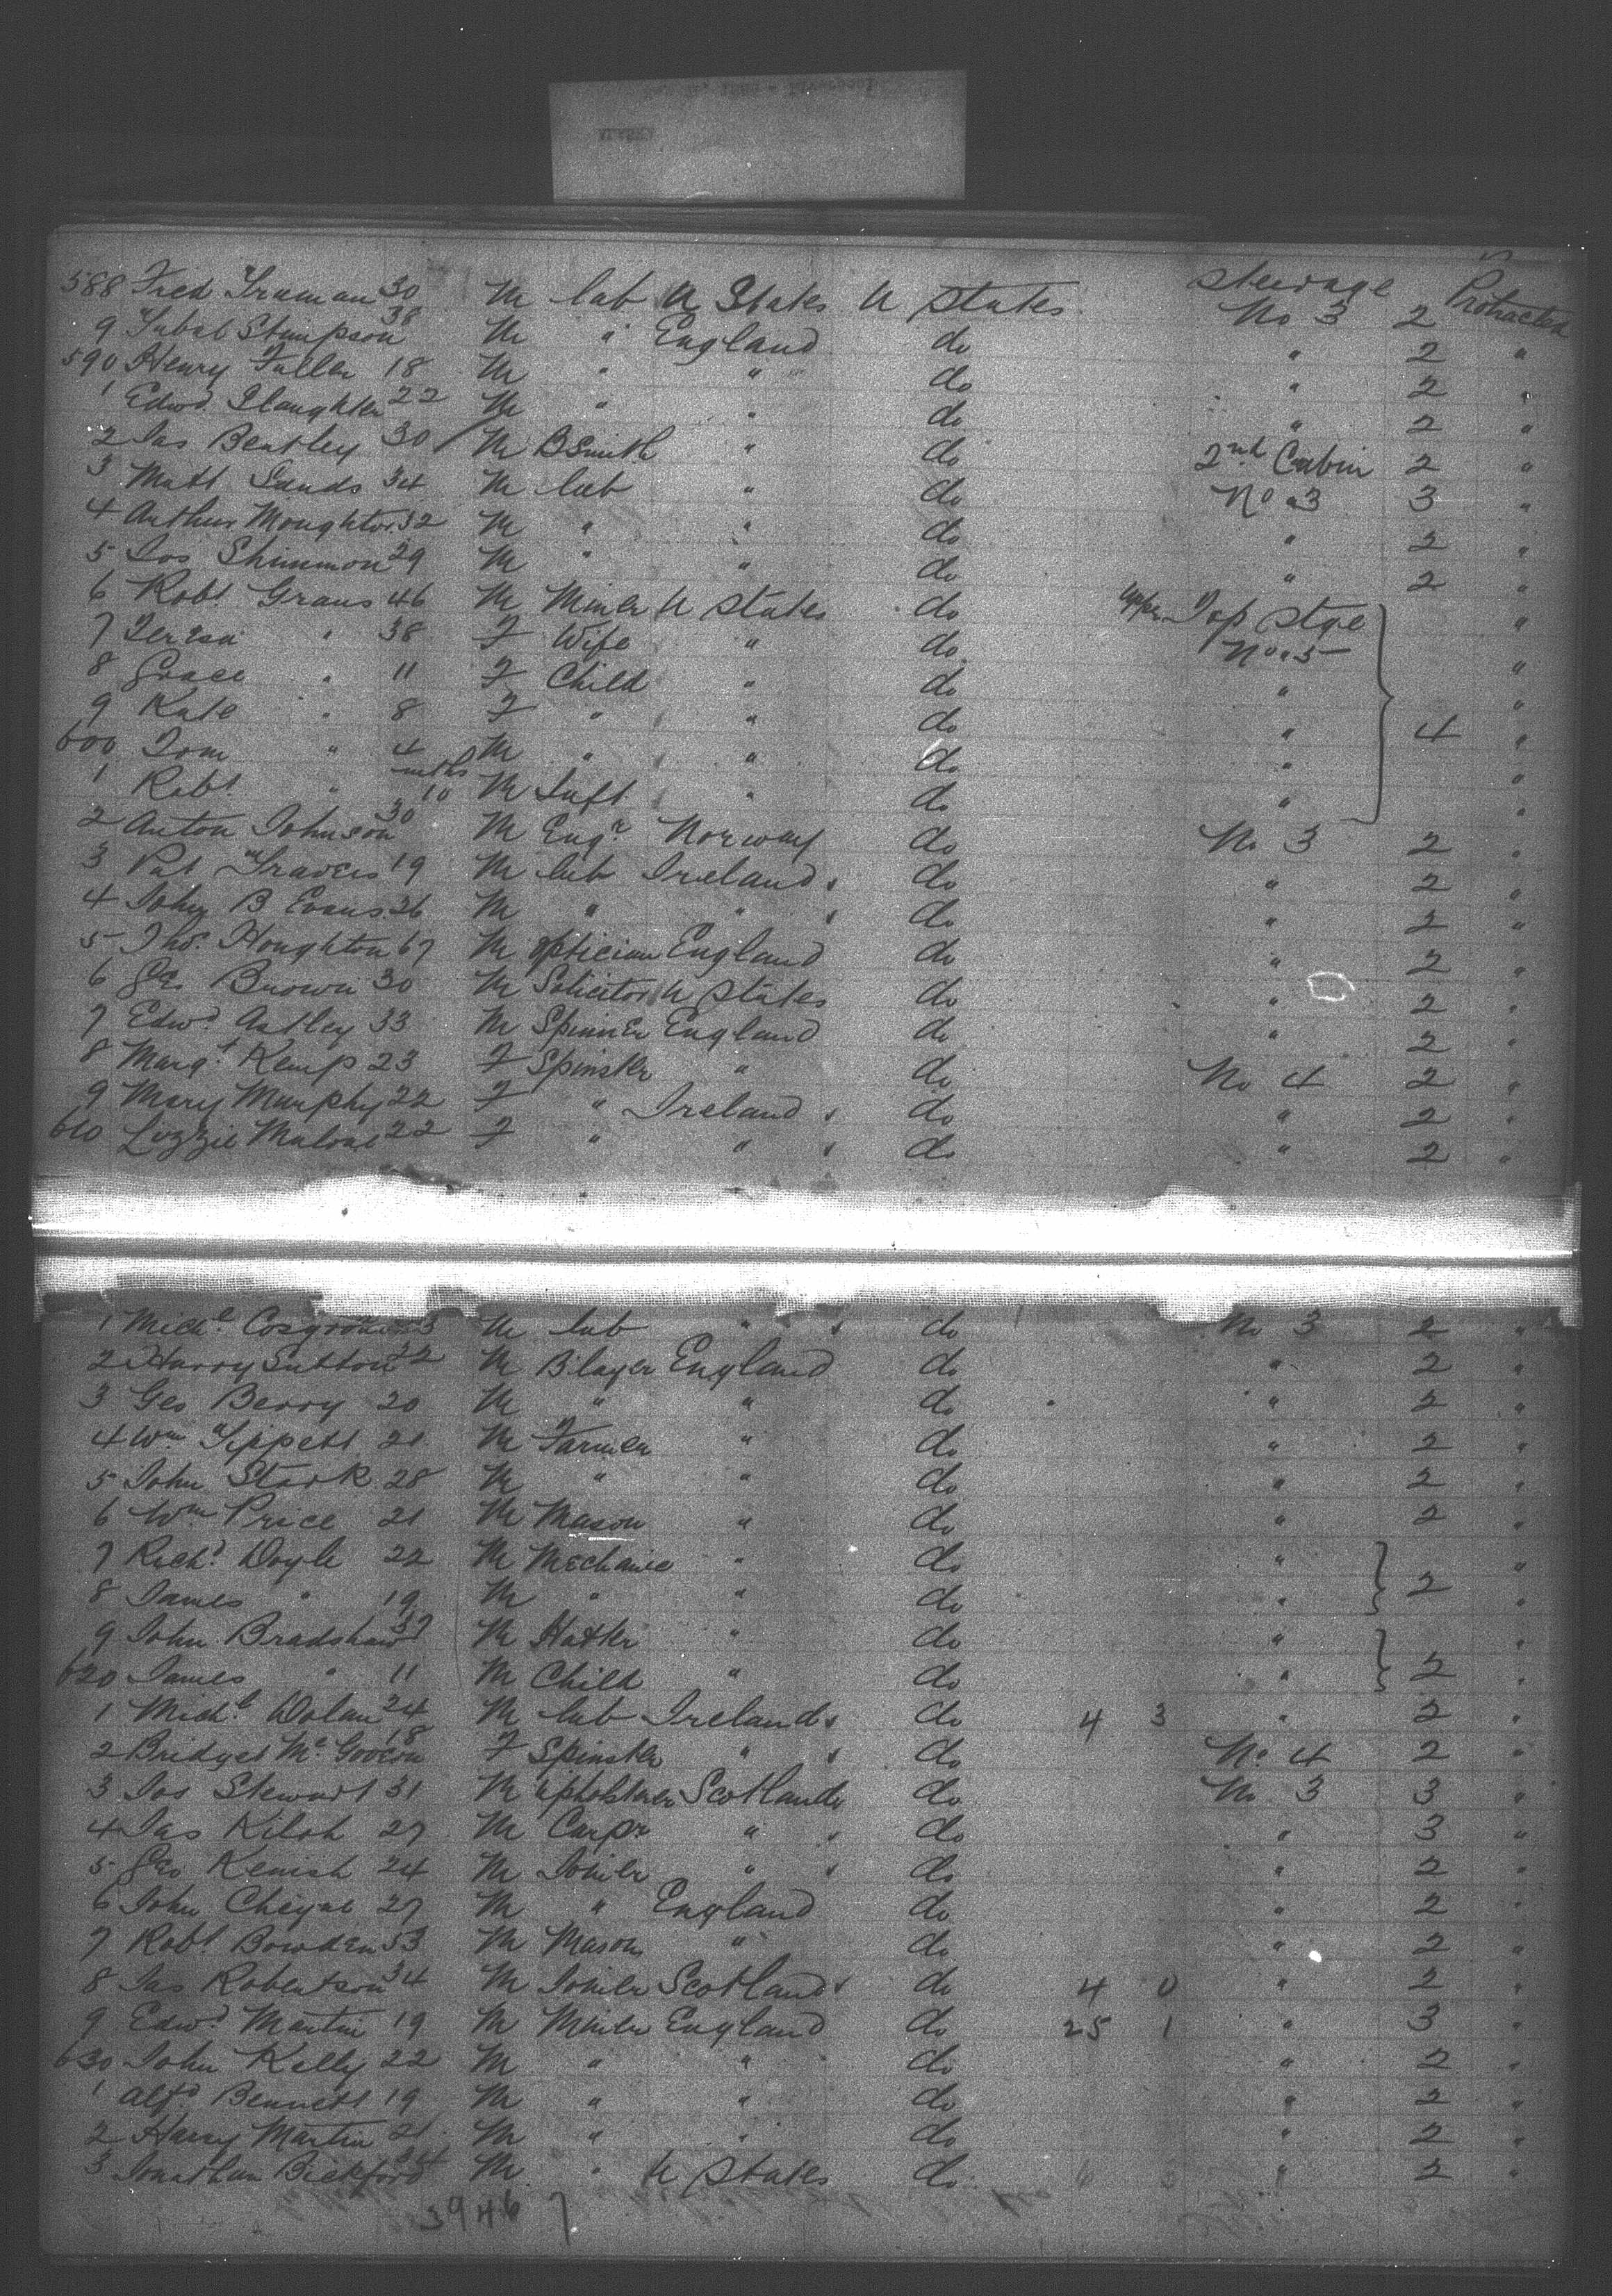 588 Fred Truman 30 M lab U States U States Steerage No 3 2 Protracted
9 Tubal Stimpson 38 M " England do " 2 "
590 Henry Fuller 18 M " " do " 2 "
1 Edwd Slaughter 22 M " " do " 2 "
2 Jas Bentley 30 M BSmith " do 2nd Cabin 2 "
3 Matt Sands 34 M lab " do No 3 3 "
4 Arthur Moughton 32 M " " do " 2 "
5 Jos Shimmon 29 M " " do " 2 "
6 Robt Graus 46 M Miner U States do upper Top stge "
7 Teresa " 38 F Wife " do No 5 "
8 Grace " 11 F Child " do " "
9 Kate " 8 F " " do " 4 "
600 Tom " 4 M " " do " "
1 Robt " mths 10 M Inft " do " "
2 Anton Johnson 30 M Engr Norway do No 3 2 "
3 Pat Travers 19 M lab Ireland do " 2 "
4 John B Evans 26 M " " do " 2 "
5 Thos Houghton 67 M optician England do " 2 "
6 Geo Brown 30 M Solicitor U States do " 2 "
7 Edwd Astley 33 M Spinner England do " 2 "
8 Margt Kemp 23 F Spinster " do No 4 2 "
9 Mary Murphy 22 F " Ireland do " 2 "
610 Lizzie Malone 22 F " " do " 2 "
1 Michl Cosgrove 23 M lab " do No 3 2 "
2 Harry Sutton 22 M Blayer England do " 2 "
3 Geo Berry 20 M " " do " 2 "
4 Wm Tippett 21 M Farmer " do " 2 "
5 John Stark 28 M " " do " 2 "
6 Wm Price 21 M Mason " do " 2 "
7 Richd Doyle 22 M Mechanic " do " "
8 James " 19 M " " do " 2 "
9 John Bradshaw 37 M Hatter " do " "
620 James " 11 M Child " do " 2 "
1 Michl Dolan 24 M lab Ireland do 4 3 " 2 "
2 Bridget McGovern 18 F Spinster " do No 4 2 "
3 Jos Stewart 31 M upholsterer Scotland do No 3 3 "
4 Jas Kiloh 27 M Carpr " do " 3 "
5 Geo Kenish 24 M Joiner " do " 2 "
6 John Cheyne 27 M " England do " 2 "
7 Robt Bowden 53 M Mason " do " 2 "
8 Jas Robertson 34 M Joiner Scotland do 4 0 " 2 "
9 Edwd Martin 19 M Miner England do 25 1 " 3 "
630 John Kelly 22 M " " do " 2 "
1 Alfd Bennett 19 M " " do " 2 "
2 Harry Martin 21 M " " do " 2 "
3 Jonathan Bickford M " U States do " 2 "
3946 7